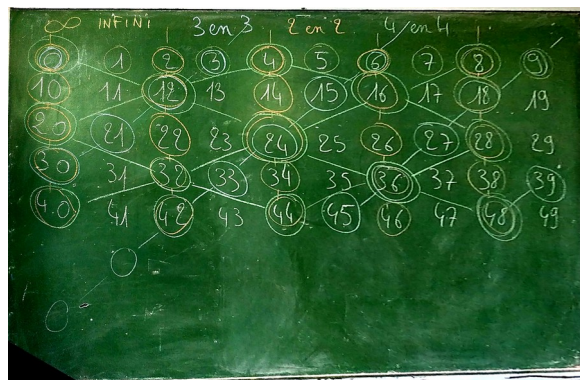 ∞ INFINI 3 en 3 2 en 2 4 en 4
0 1 2 3 4 5 6 7 8 9
10 11 12 13 14 15 16 17 18 19
20 21 22 23 24 25 26 27 28 29
30 31 32 33 34 35 36 37 38 39
40 41 42 43 44 45 46 47 48 49